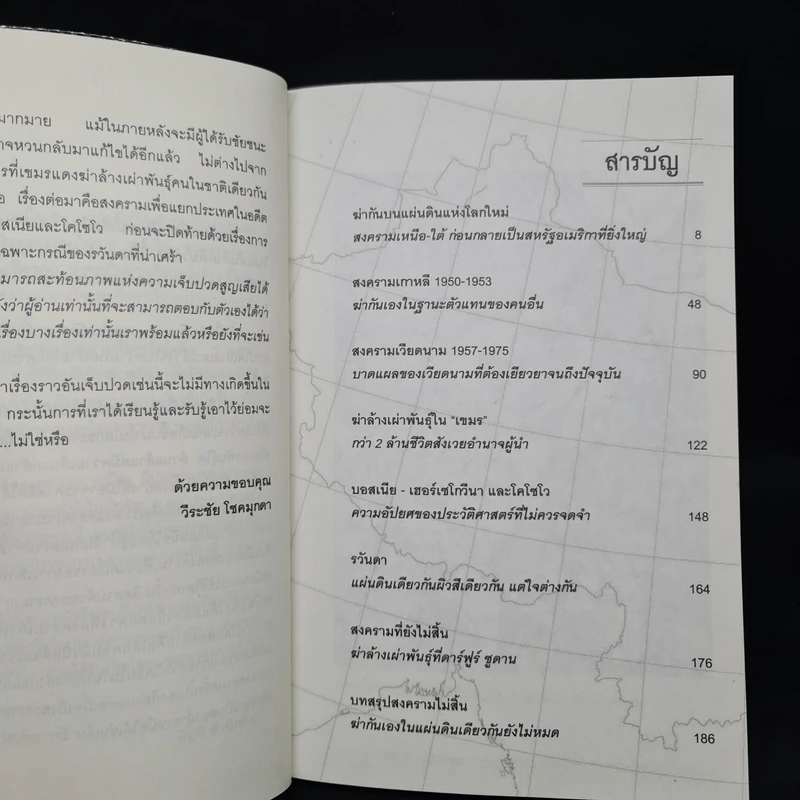 มากมาย แม้ในภายหลังจะมีผู้ได้รับชัยชนะ
าจหวนกลับมาแก้ไขได้อีกแล้ว ไม่ต่างไปจาก
รที่เขมรแดงฆ่าล้างเผ่าพันธุ์คนในชาติเดียวกัน
อ เรื่องต่อมาคือสงครามเพื่อแยกประเทศในอดีต
สเนียและโคโซโว ก่อนจะปิดท้ายด้วยเรื่องการ
ฉพาะกรณีของรวันดาที่น่าเศร้า
มารถสะท้อนภาพแห่งความเจ็บปวดสูญเสียได้
ังว่าผู้อ่านเท่านั้นที่จะสามารถตอบกับตัวเองได้ว่า
เรื่องบางเรื่องเท่านั้นเราพร้อมแล้วหรือยังที่จะเช่น
าเรื่องราวอันเจ็บปวดเช่นนี้จะไม่มีทางเกิดขึ้นใน
กระนั้นการที่เราได้เรียนรู้และรับรู้เอาไว้ย่อมจะ
...ไม่ใช่หรือ
ด้วยความขอบคุณ
วีระชัย โชคมุกดา
สารบัญ
ฆ่ากันบนแผ่นดินแห่งโลกใหม่
สงครามเหนือ-ใต้ ก่อนกลายเป็นสหรัฐอเมริกาที่ยิ่งใหญ่ 8
สงครามเกาหลี 1950-1953
ฆ่ากันเองในฐานะตัวแทนของคนอื่น 48
สงครามเวียดนาม 1957-1975
บาดแผลของเวียดนามที่ต้องเยียวยาจนถึงปัจจุบัน 90
ฆ่าล้างเผ่าพันธุ์ใน “เขมร”
กว่า 2 ล้านชีวิตสังเวยอำนาจผู้นำ 122
บอสเนีย - เฮอร์เซโกวีนา และโคโซโว
ความอัปยศของประวัติศาสตร์ที่ไม่ควรจดจำ 148
รวันดา
แผ่นดินเดียวกันผิวสีเดียวกัน แต่ใจต่างกัน 164
สงครามที่ยังไม่สิ้น
ฆ่าล้างเผ่าพันธุ์ที่ดาร์ฟูร์ ซูดาน 176
บทสรุปสงครามไม่สิ้น
ฆ่ากันเองในแผ่นดินเดียวกันยังไม่หมด 186